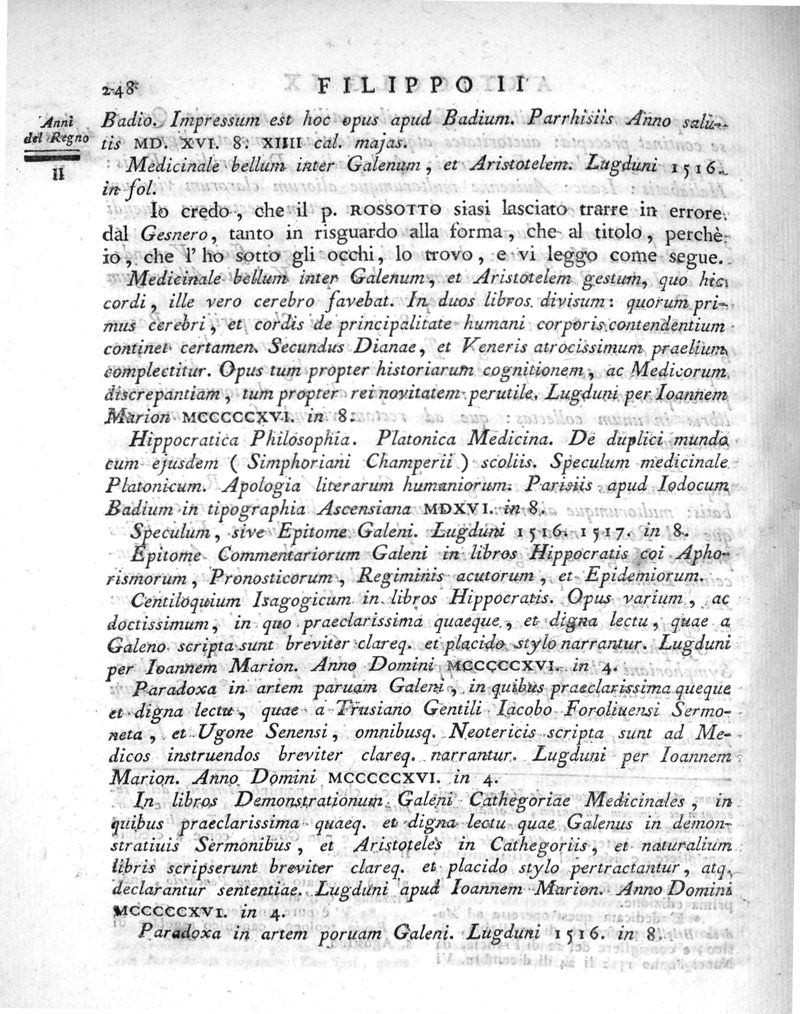 248 FILIPPO II
Anni
del Regno
II
Badio. Impressum est hoc opus apud Badium. Parrhisiis Anno salu-
tis MD. XVI. 8: XIIII cal. majas.
Medicinale bellum inter Galenum, et Aristotelem. Lugduni 1516.
in fol.
Io credo, che il p. ROSSOTTO siasi lasciato trarre in errore
dal Gesnero, tanto in risguardo alla forma, che al titolo, perchè
io, che l'ho sotto gli occhi, lo trovo, e vi leggo come segue.
Medicinale bellum inter Galenum, et Aristotelem gestum, quo hic
cordi, ille vero cerebro favebat. In duos libros divisum: quorum pri-
mus cerebri, et cordis de principalitate humani corporis contendentium
continet certamen. Secundus Dianae, et Veneris atrocissimum praelium
complectitur. Opus tum propter historiarum cognitionem, ac Medicorum
discrepantiam, tum propter rei novitatem perutile. Lugduni per Ioannem
Marion MCCCCCXVI. in 8.
Hippocratica Philosophia. Platonica Medicina. De duplici mundo
cum ejusdem ( Simphoriani Champerii ) scoliis. Speculum medicinale
Platonicum. Apologia literarum humaniorum. Parisiis apud Iodocum
Badium in tipographia Ascensiana MDXVI. in 8.
Speculum, sive Epitome Galeni. Lugduni 1516. 1517. in 8.
Epitome Commentariorum Galeni in libros Hippocratis coi Apho-
rismorum, Pronosticorum, Regiminis acutorum, et Epidemiorum.
Centiloquium Isagogicum in libros Hippocratis. Opus varium, ac
doctissimum, in quo praeclarissima quaeque, et digna lectu, quae a
Galeno scripta sunt breviter clareq. et placido stylo narrantur. Lugduni
per Ioannem Marion. Anno Domini MCCCCCXVI. in 4.
Paradoxa in artem paruam Galeni, in quibus praeclarissima queque
et digna lectu, quae a Trusiano Gentili Iacobo Foroliuensi Sermo-
neta, et Ugone Senensi, omnibusq. Neotericis scripta sunt ad Me-
dicos instruendos breviter clareq. narrantur. Lugduni per Ioannem
Marion. Anno Domini MCCCCCXVI. in 4.
In libros Demonstrationum Galeni Cathegoriae Medicinales, in
quibus praeclarissima quaeq. et digna lectu quae Galenus in demon-
stratiuis Sermonibus, et Aristoteles in Cathegoriis, et naturalium
libris scripserunt breviter clareq. et placido stylo pertractantur, atq.
declarantur sententiae. Lugduni apud Ioannem Marion. Anno Domini
MCCCCCXVI. in 4.
Paradoxa in artem poruam Galeni. Lugduni 1516. in 8.